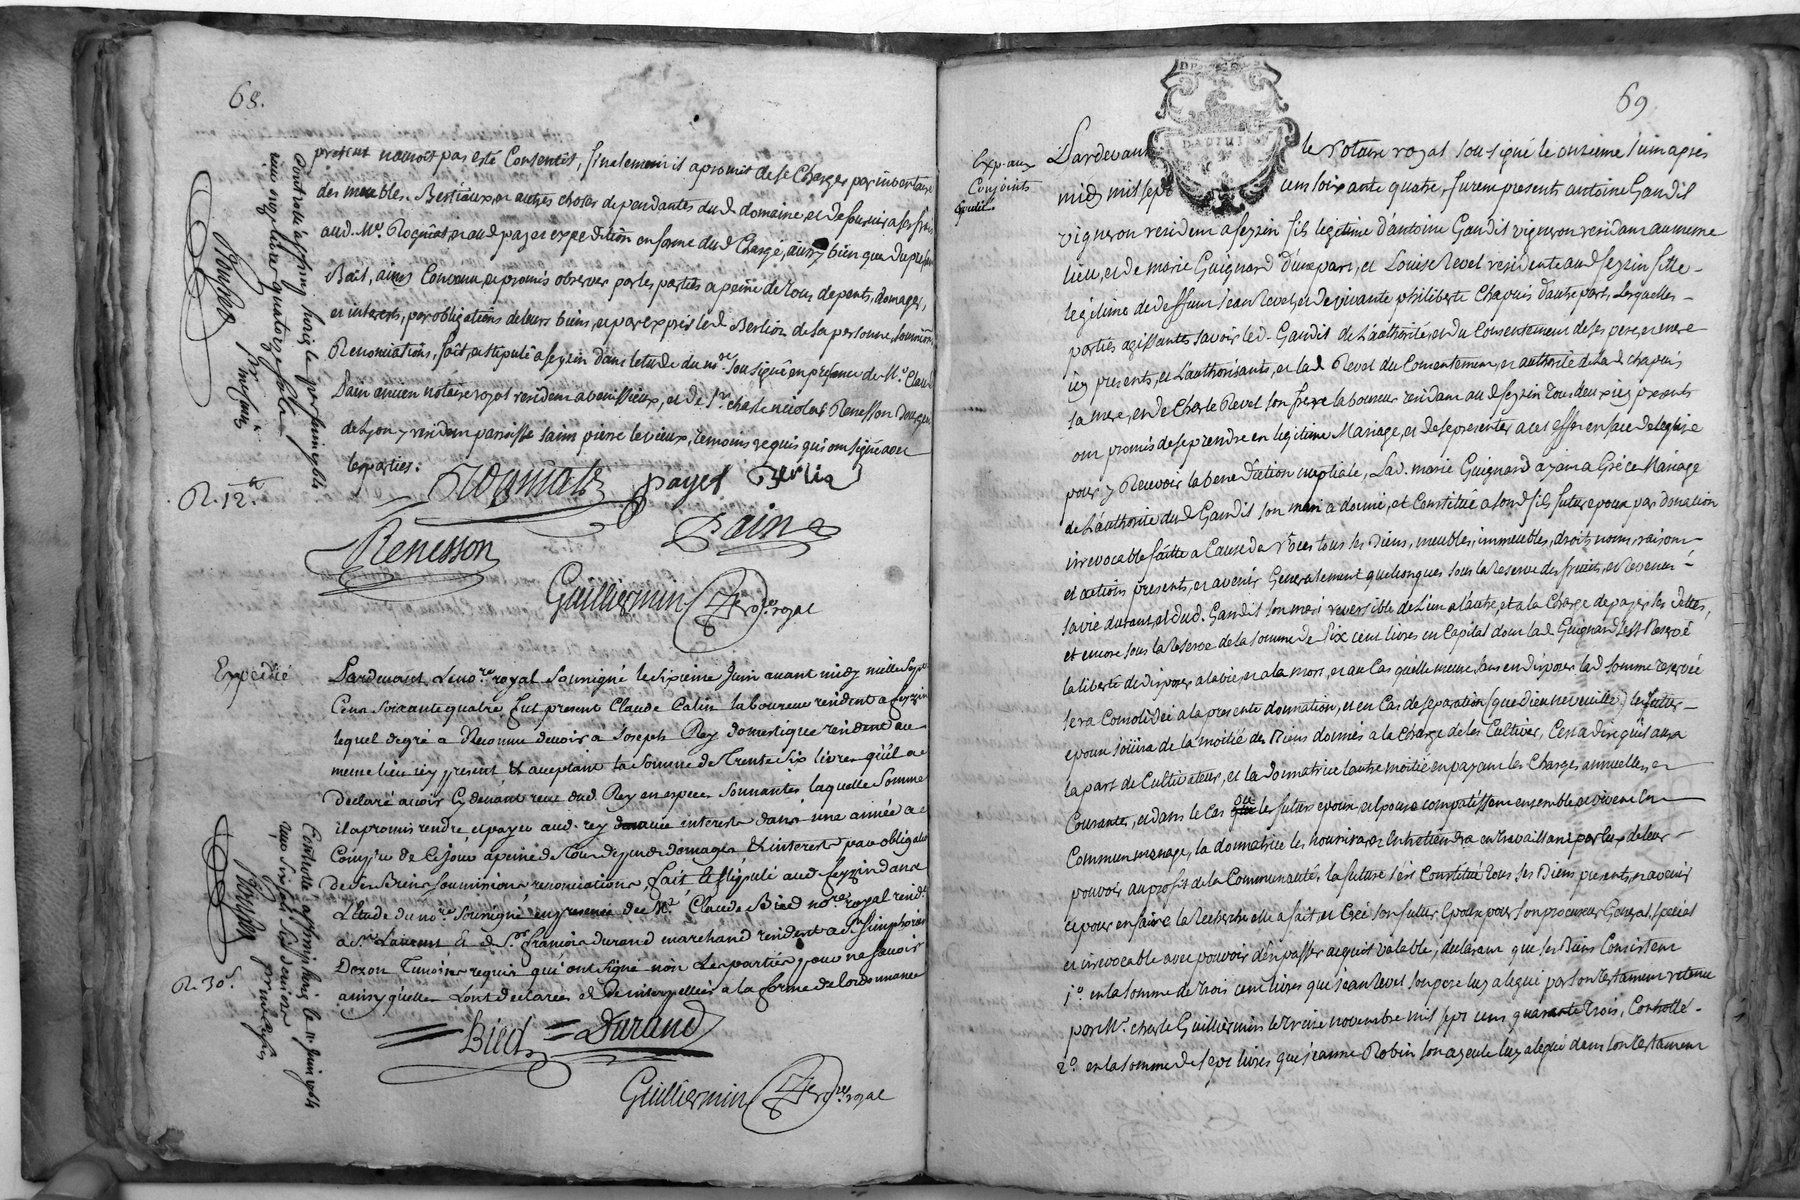 68.
present n'auroit pas esté Consentis, finalement il a promit de se Charger par inventaire
des meubles, Bestiaux, et autres choses dependantes dud. domaine, et de fournir a ses frais
aud. Mr. Roguiat, et aud. payet expedition en forme dud. Chargé, aussy bien que du present
Bail, ainsy Convenu, et promis observer par les parties a peine de tous depents, domages,
et interests, par obligations de leurs biens, et par exprès led. Berlion de sa personne, soumissions
Renonciations, fait, et stipulé a feyzin dans l'etude du nore. sousigné en presence de Mr. Claude
Dain ancien notaire royal resident a venissieux, et de Sr. charle nicolas Renesson Bourgeois
de Lyon y resident paroisse saint pierre le vieux, temoins requis qui ont signé avec
les parties.
Controllé a st simphorien le
sieu neuf livres quatorze sols
R. 12tt.
Roguiat payet Berlio
Renesson Dain
Guilliermin nore. royal
Expedié
Pardevant Le nore. royal Sousigné le Sixieme Juin avant midy mille Sept
Cent Soixante quatre fut present Claude Calin laboureur resident a feyzin
lequel degré a Reconnu devoir a Joseph Rey domestique resident au
meme lieu icy present & acceptant la Somme de Trente Six livres qu'il a
declaré avoir Cy devant receu dud. Rey en especes Sonnantes laquelle Somme
il a promis rendre et payer aud. rey avec interest dans une année a
Compter de Ce jour a peine de tous depends domages & interest par obligation
de ses Biens soumissions renonciations, fait & stipulé aud. feyzin dans
L'étude du nore. Sousigné en presence de Mr. Claude Bied nore. royal resident
a St. Laurent & de Sr. francois durand marchand resident a St. Simphorien
Dozon Temoins requis qui ont signé non Les parties pour ne sçavoir
ainsy quelles L'ont declarés de ce interpellées a la forme de lordonnance
R. 30s.
Bied Durand
Guilliermin nore. royal
69
Exp. aux
Conjoints
Gandil
Pardevant le notaire royal sousigné le onzieme Juin apres
midy mil sept cent soixante quatre, furent presents antoine Gandil
vigneron resident a feyzin fils legitime d'antoine Gandil vigneron resident au meme
lieu, et de marie Guignard d'une part, et Louise Revel residente aud. feyzin fille
legitime de deffunt Jean Revel, et de vivante philiberte Chapuis d'autre part, Lesquelles
parties agissantes savoir led. Gandil de L'authorité, et du Consentement de ses pere, et mere
icy presents, et L'authorisants, et lad. Revel du Consentement, et authorité de lad. chapuis
sa mere, et de Charle Revel son frere laboureur resident aud. feyzin tous deux icy presents
ont promis de se prendre en legitime Mariage, et de se presenter a cet effet en face de l'eglise
pour y Recevoir la benediction nuptiale, Lad. marie Guignard ayant a Gré ce Mariage
de L'authorité dud. Gandil son mari a donné, et Constitué a sond. fils futur epoux par donation
irrevocable faitte a Cause de noces tous ses Biens, meubles, immeubles, droits, noms, raisons
et actions presents, et avenir Generalement quelconques sous la Reserve des fruits, et Revenus
sa vie durant, et dud. Gandil son mari reversible de L'un a l'autre, et a la Charge de payer les dettes,
et encore sous la Reserve de la somme de Six cent livres en Capital dont lad. Guignard s'est Reservé
la liberté de disposer a la vie et a la mort, et au Cas qu'elle meure sans en disposer lad. somme reservée
sera Consolidée a la presente donnation, et en Cas de separation (que dieu ne veuille) les futur
epoux joüira de la moitié des Biens donnés a la Charge de les Cultiver, C'est a dire qu'il aura
la part de Cultivateur, et la donnatrice l'autre moitié en payant les Charges annuelles et
Courantes, et dans le Cas ou les futurs epoux et epouse compatissent ensemble et vivent en
Commun menage, la donnatrice les nourrira et Entretiendra en travaillant par eux de leur
pouvoir au profit de la Communauté, la future s'est Constitué tous ses Biens presents, et avenir
et pour en faire la Recherche elle a fait, et Créé son futur Epoux pour son procureur General, special
et irrevocable avec pouvoir d'en passer acquit valable, declarant que ses Biens Consistent
1o. en la somme de trois cent livres que jean Revel son pere luy a legué par son testament retenu
par Mr. charle Guilliermin le treize novembre mil sept cent quarante trois, Controllé
2o. en la somme de sept livres que jeanne Robin son ayeule luy a legué dans son testament